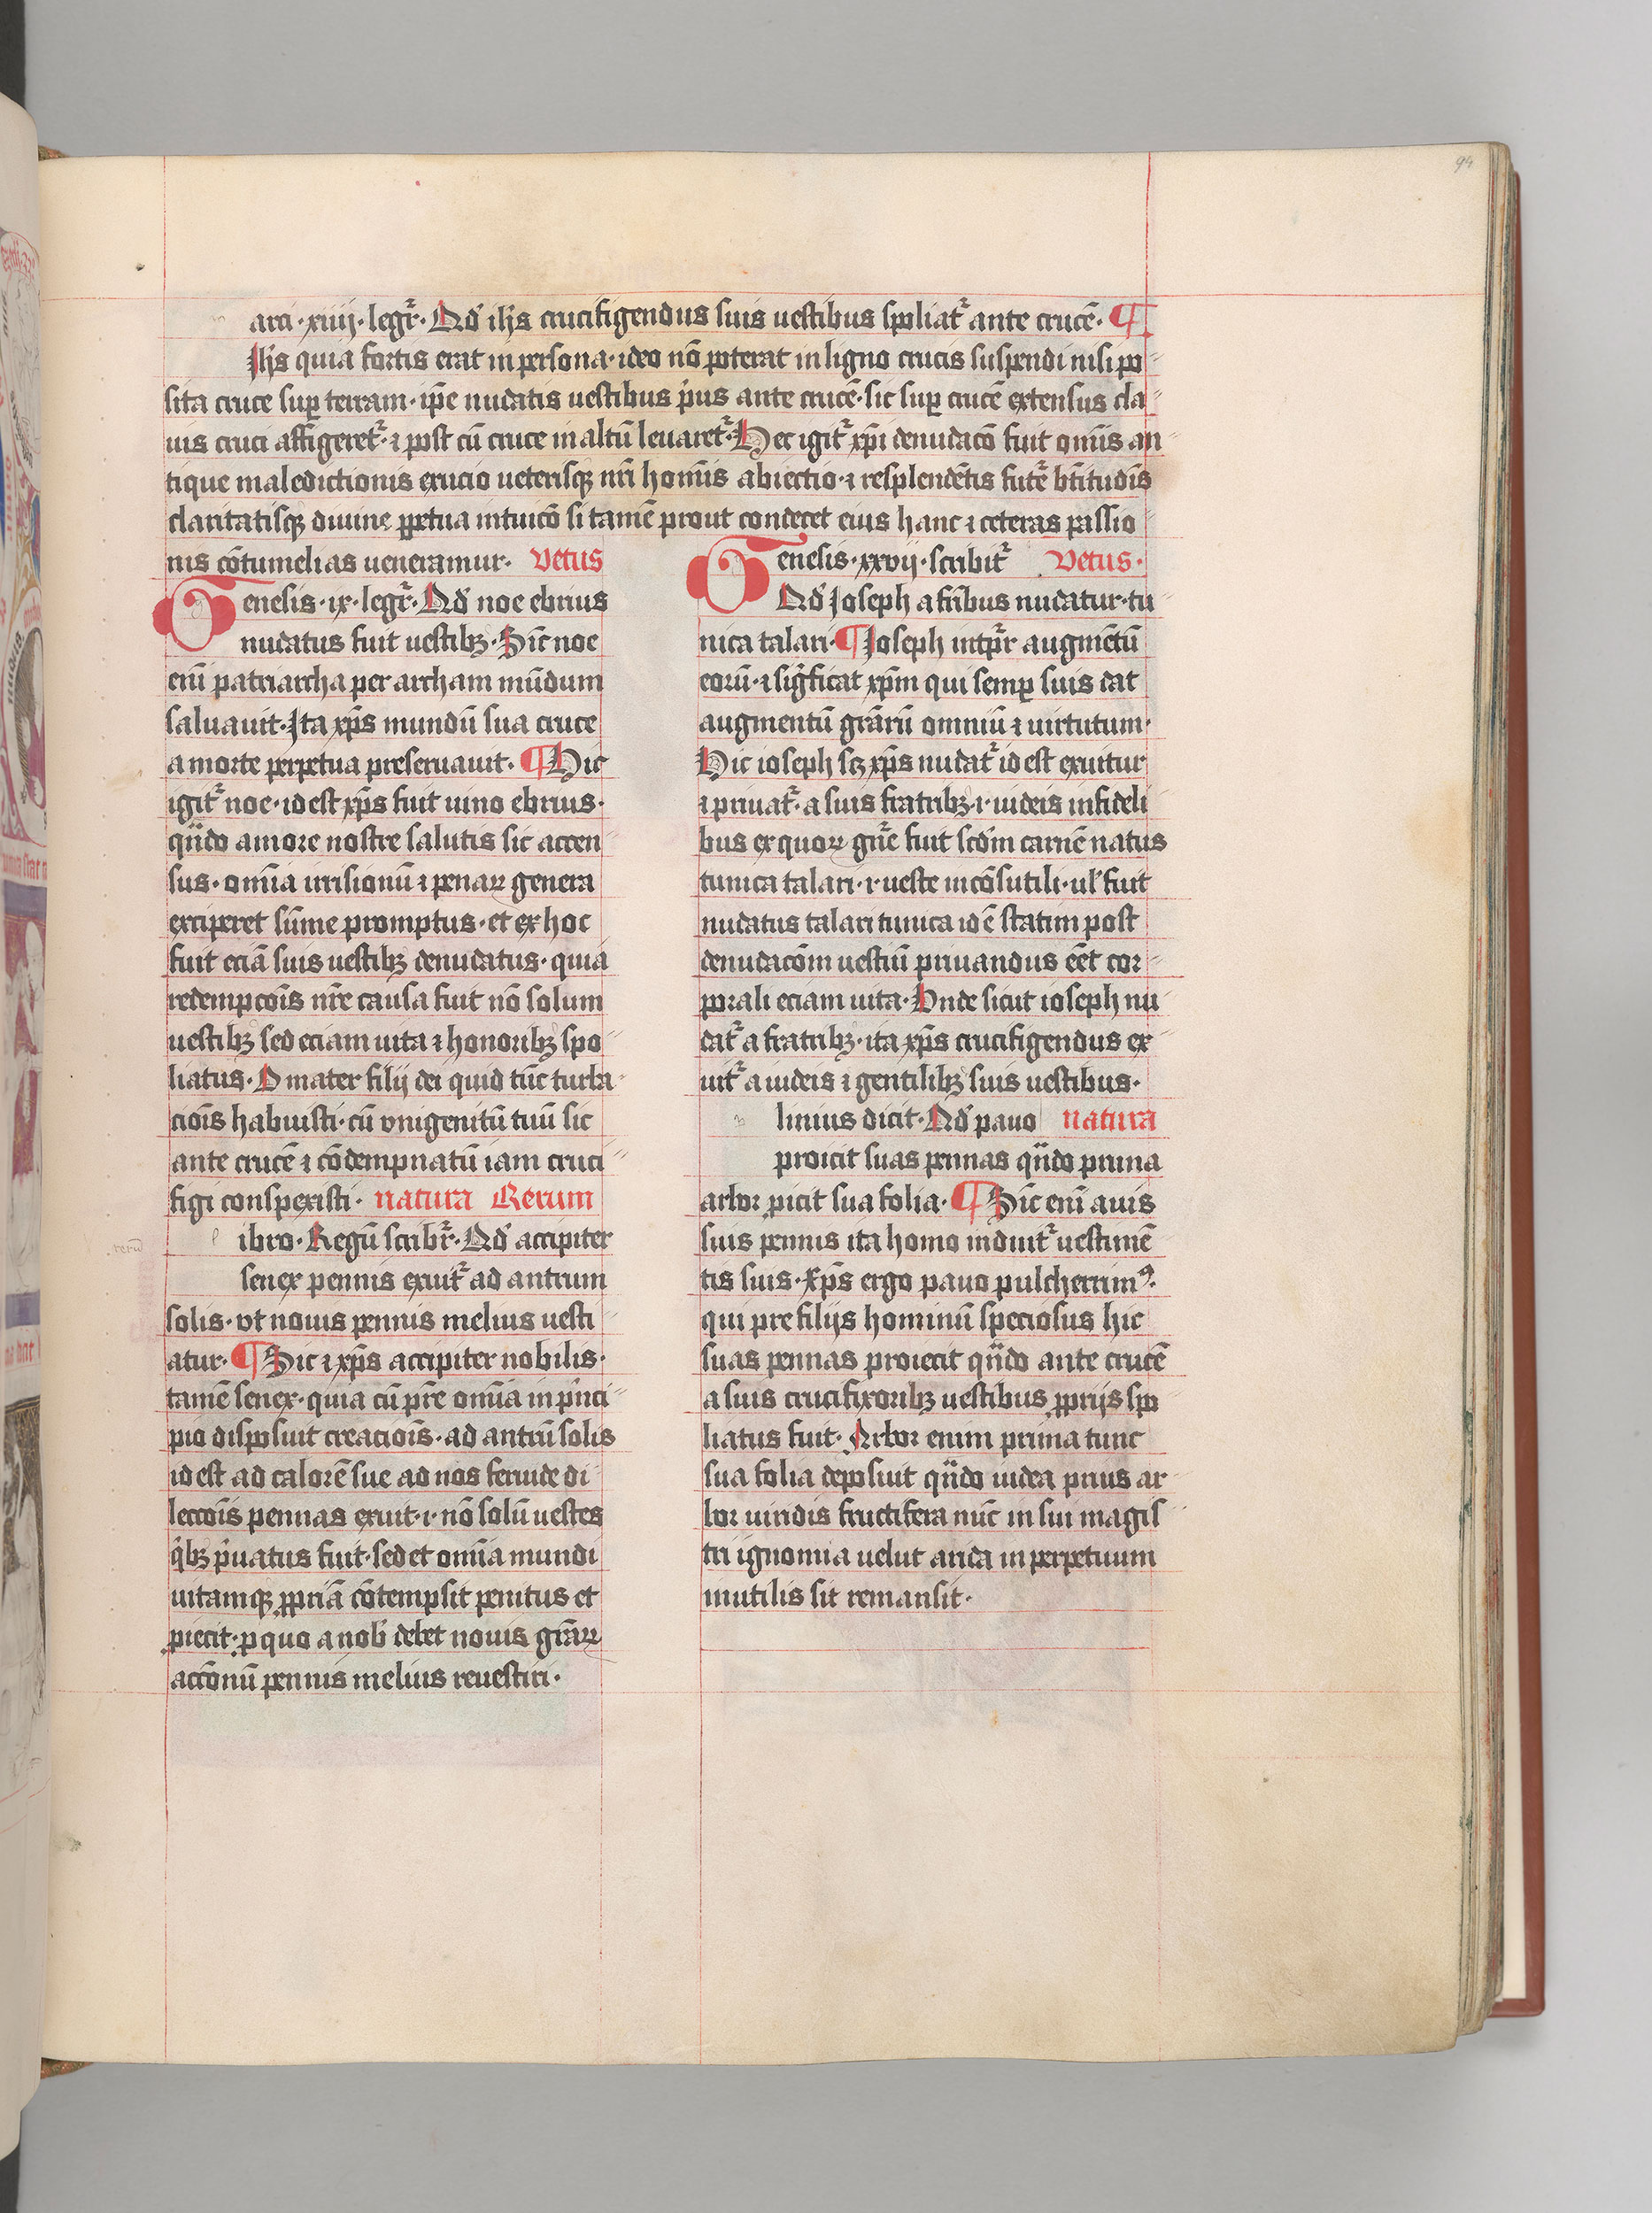 94
arci · xiiij · legr̃ · Qd̕ ih̄s crucifigendus suis uestibus spoliat᷑ ante crucē · ¶
Ih̄s quia fortis erat in persona · ideo nō poterat in ligno crucis suspendi nisi po
sita cruce sup̱ terram · ip̄e nudatis uestibus p̕us ante crucē · sic sup̱ crucē extensus cla
uis cruci affigeret᷑ · ⁊ post cū cruce in altū leuaret᷑ · Hec igit᷑ xp̄i denudacō fuit om̄is an
tique maledictionis exucio ueterisqꝫ nr̄i hom̄is abiectio · ⁊ resplendētis futē bt̄itudīs
claritatisqꝫ diuine ꝑpetua intuicō si tamē prout condecet eius hanc ⁊ ceteras passio
nis cōtumelias ueneramur · Vetus
Genesis · ix · legr̃ · Qd̕ noe ebrius
nudatus fuit uestibꝫ · Sic̄ noe
eni̅ patriarcha per archam mūdum
saluauit · Ita xp̄s mundū sua cruce
a morte perpetua preseruauit · ¶ Hic
igit᷑ noe · id est xp̄s fuit uino ebrius ·
qn̄do amore nostre salutis sic accen
sus · om̄ia irrisionū ⁊ penaꝝ genera
exciperet sūme promptus · et ex hoc
fuit eciā suis uestibꝫ denudatus · quia
redempcōis nr̄e causa fuit nō solum
uestibꝫ sed eciam uita ⁊ honoribꝫ spo
liatus · O mater filij dei quid tūc turba
ciōis habuisti · cū vnigenitū tuū sic
ante crucē ⁊ cōdempnatū iam cruci
figi conspexisti · natura Rerum
ibro · Regū scribr̃ · Qd̕ accipiter
senex pennis exuit᷑ ad antrum
solis · vt nouis pennis melius uesti
atur · ¶ Sic ⁊ xp̄s accipiter nobilis ·
tamē senex · quia cū pr̄e om̄ia in p̕nci
pio disposuit creaciōis · ad antrū solis
id est ad calorē sue ad nos feruide di
leccōis pennas exuit · i · nō solū uestes
q̕bꝫ p̕uatus fuit · sed et om̄ia mundi
uitamqꝫ ꝓpriā cōtempsit penitus et
ꝓiecit · ꝓ quo a nob̕ debet nouis grāꝝ
accōnū pennis melius reuestiri ·
Genesis · xxvij · scribit᷑ Vetus ·
Qd̕ Ioseph a frībus nudatur · tu
nica talari · ¶ Ioseph intp̱r̃ augmētū
eorū · ⁊ sigͥficat xp̄m qui semp̱ suis dat
augmentū grārū omniū ⁊ uirtutum ·
Hic ioseph sꝫ xp̄s nudat᷑ id est exuitur
⁊ priuat᷑ · a suis fratribꝫ · i · iudeis infideli
bus ex quoꝝ gn̄e fuit scd̄m carnē natus
tunica talari · i · ueste incōsutili · ul̕ fuit
nudatus talari tunica id ē statim post
denudacōm uestiū priuandus eēt cor
porali eciam uita · Vnde sicut ioseph nu
dat᷑ a fratribꝫ · ita xp̄s crucifigendus ex
uit᷑ a iudeis ⁊ gentilibꝫ suis uestibus ·
linius dicit · Qd̕ pauo natura
proicit suas pennas qn̄do prima
arbor ꝓicit sua folia · ¶ Sic̄ eni̅ auis
suis pennis ita homo induit᷑ uestimē
tis suis · Xp̄s ergo pauo pulcherrimꝰ ·
qui pre filijs hominū speciosus hic
suas pennas proiecit qn̄do ante crucē
a suis crucifixoribꝫ uestibus ꝓprijs spo
liatus fuit · Arbor enim prima tunc
sua folia deposuit qn̄do iudea prius ar
bor uiridis fructifera nūc in sui magis
tri ignomia uelut arida in perpetuum
inutilis sit remansit ·